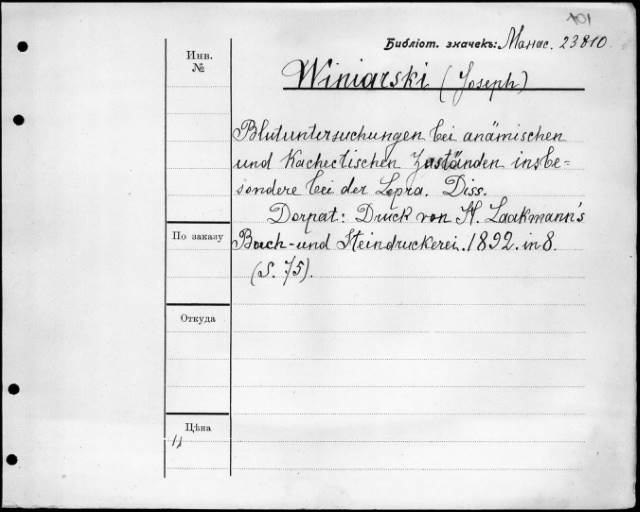 101
Библіот. значекъ: Манас. 23810.
Инв.
№
Winiarski (Joseph)
Blutuntersuchungen bei anämischen
und Kachectischen Zuständen insbe=
sondere bei der Lepra. Diss.
Dorpat: Druck von H. Laakmann's
По заказу
Buch- und Steindruckerei. 1892. in 8.
(S. 75).
Откуда
Цѣна